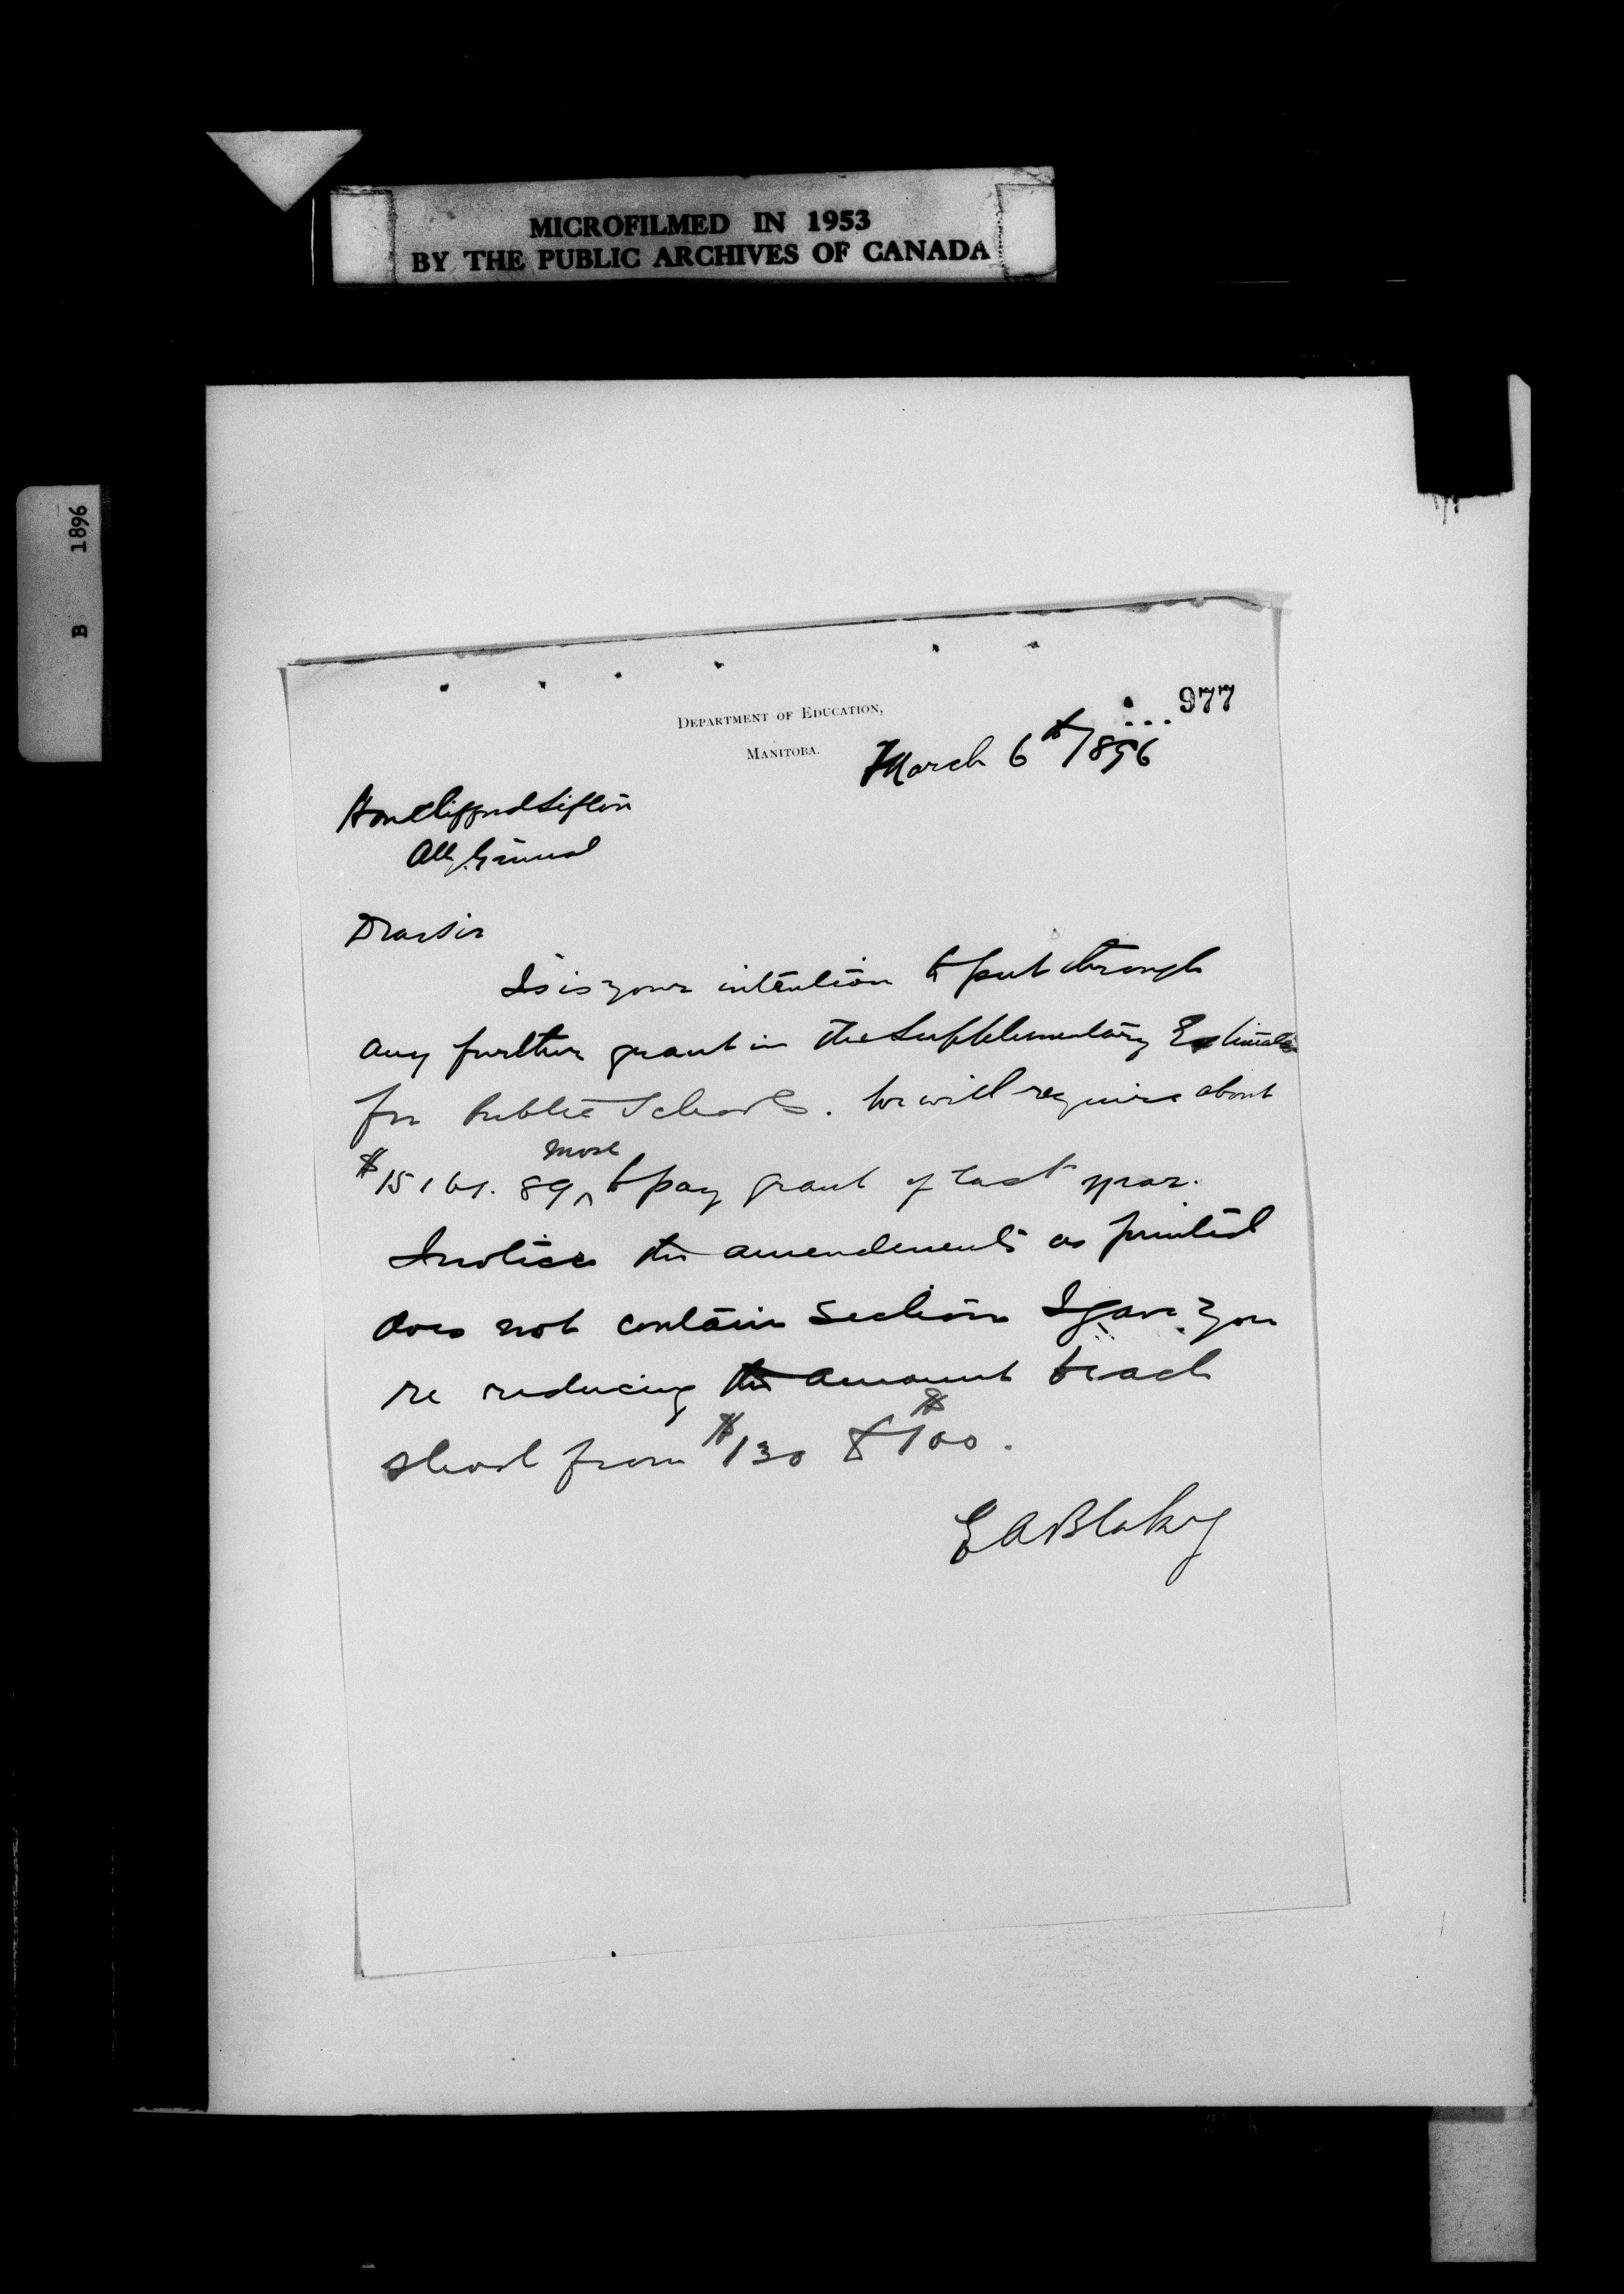 MICROFILMED IN 1953
BY THE PUBLIC ARCHIVES OF CANADA
B 1896
977
DEPARTMENT OF EDUCATION,
MANITOBA.
March 6th 1896
Hon Clifford Sifton
Atty. General
Dear Sir
Is is your intention to put through
any further grant in the Supplementary Estimates
for Public Schools. We will require about
more
$15161.89 to pay grant of last year.
I notice the amendements as printed
does not contain section I gave you
re reducing the amount to each
school from $130 to $100.
E A Blakey